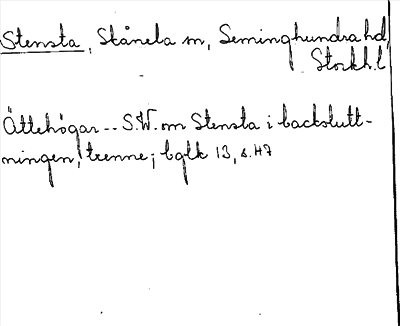 Stensta, Skånela sn, Seminghundra hd,
Stockh. l
Ättehögar -- S.W. om Stensta i backslutt-
ningen, trenne; bglk 13, s. 47